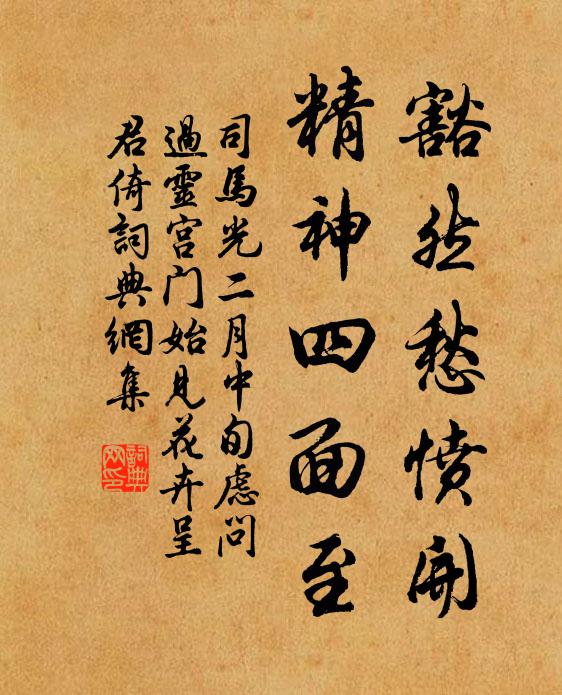 豁然愁憤開
精神四面至
司馬光二月中旬慮問
過靈宮门始見花卉呈
君倚詞典網集
詞典
网印